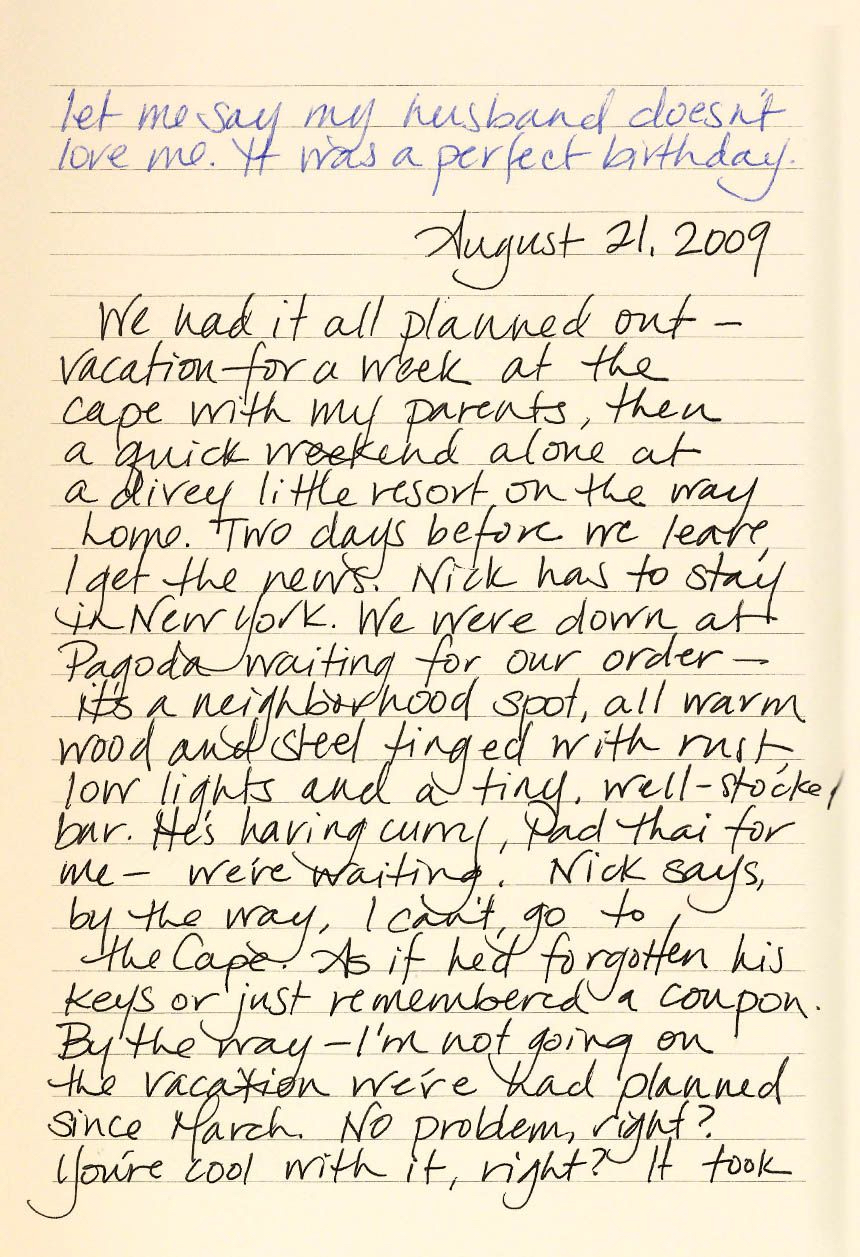 let me say my husband doesn't
love me. It was a perfect birthday.
August 21, 2009
We had it all planned out –
vacation for a week at the
cape with my parents, then
a quick weekend alone at
a divey little resort on the way
home. Two days before we leave,
I get the news. Nick has to stay
in New York. We were down at
Pagoda waiting for our order –
it's a neighborhood spot, all warm
wood and steel tinged with rust,
low lights and a tiny, well-stocked
bar. He's having curry, Pad thai for
me – we're waiting. Nick says,
by the way, I can't go to
the Cape. As if he'd forgotten his
keys or just remembered a coupon.
By the way – I'm not going on
the vacation we've had planned
since March. No problem, right?
You're cool with it, right? It took